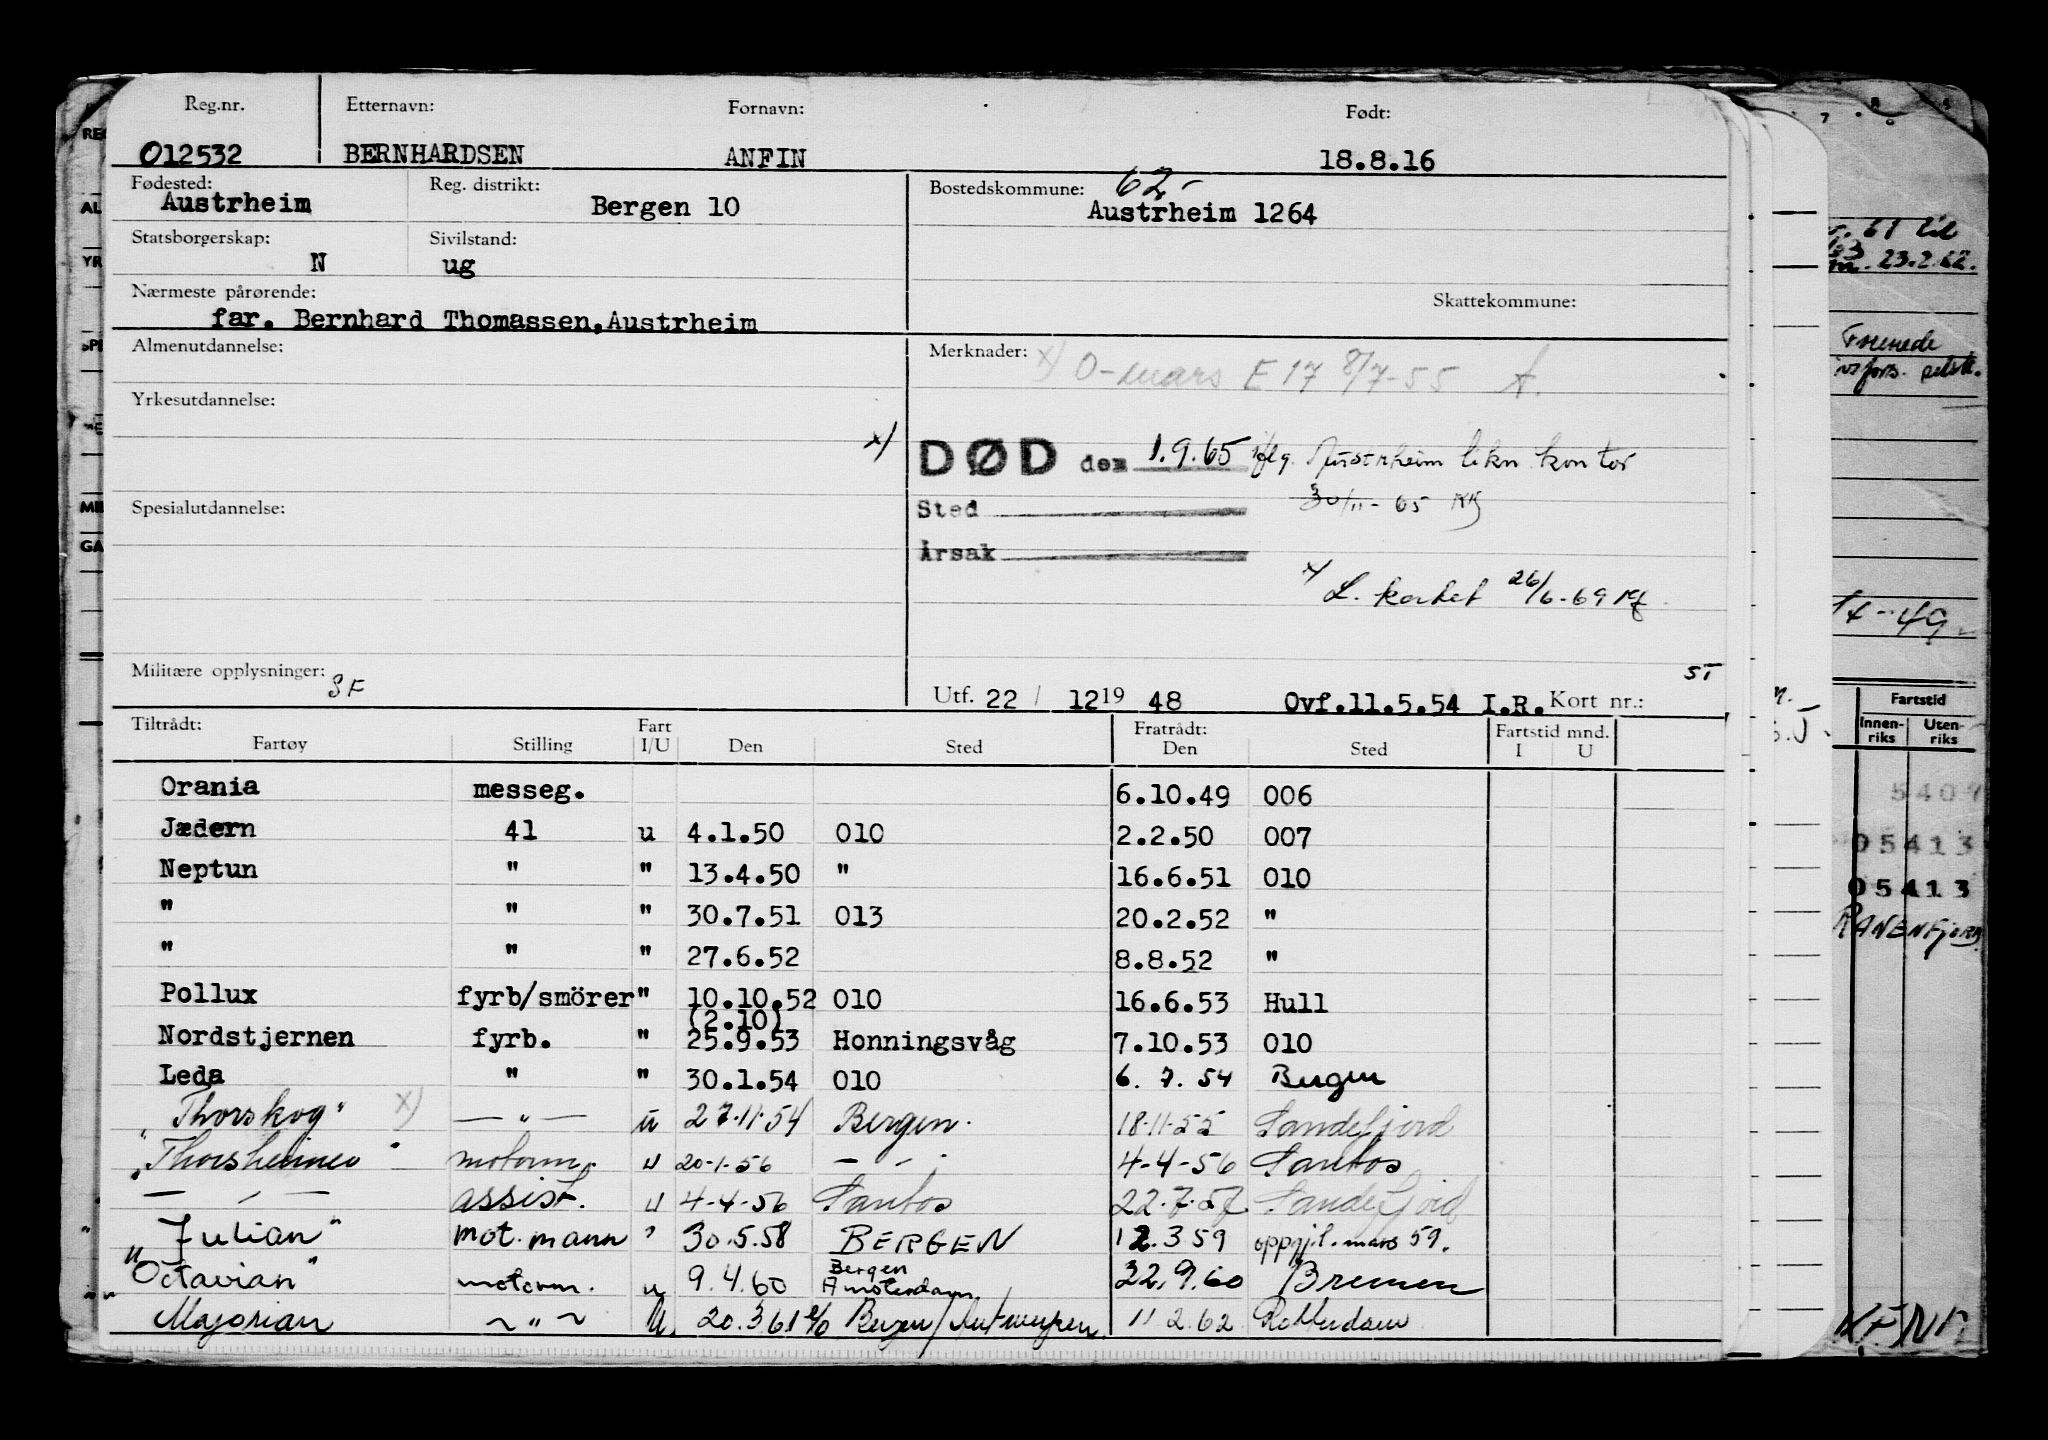 Reg.nr. Etternavn: Fornavn: Født:
012532 BERNHARDSEN ANFIN 18.8.16
Fødested: Reg. distrikt: Bostedskommune: 62,-
Austrheim Bergen 10 Austrheim 1264
Statsborgerskap: Sivilstand:
N ug
Nærmeste pårørende: Skattekommune:
far. Bernhard Thomassen,Austrheim
Almenutdannelse: Merknader: x) O-mars E 17 8/7-55 A.
Yrkesutdannelse:
x) DØD den 1.9.65 iflg. Austrheim likn. kontor
Spesialutdannelse: Sted 30/11-65 KK
Årsak
x) L. kortet 26/6-69
Militære opplysninger: SF ST
Utf. 22/ 12 19 48 Ovf.11.5.54 I.R. Kort nr.:
Tiltrådt: Fart Fratrådt: Fartstid mnd.
Fartøy Stilling I/U Den Sted Den Sted I U
Orania messeg. 6.10.49 006
Jædern 41 u 4.1.50 010 2.2.50 007
Neptun " " 13.4.50 " 16.6.51 010
" " " 30.7.51 013 20.2.52 "
" " " 27.6.52 8.8.52 "
Pollux fyrb/smörer " 10.10.52 010 16.6.53 Hull
(2.10)
Nordstjernen fyrb. " 25.9.53 Honningsvåg 7.10.53 010
Leda " " 30.1.54 010 6. 7. 54 Bergen
"Thorskog" x) — " — u 27.11.54 Bergen. 18.11.55 Sandefjord
"Thorsheimer" motorm. u 20-1-56 — " — 4-4-56 Santos
— " — assist. u 4-4-56 Santos 22.7.57 Sandefjord
"Julian" mot.mann " 30.5.58 BERGEN 12.3 59 oppgj.l. mars 59.
"Octavian" motorm. u 9.4.60 Bergen Amsterdam 22.9.60 Bremen
"Majorian ~ " ~ U 20.3 61 Bergen/Antwerpen 11 2.62 Rotterdam
61 til
23.2.62.
Forenede
Fartstid
Innen-riks Uten-riks
05413
05413
RANENFJORD